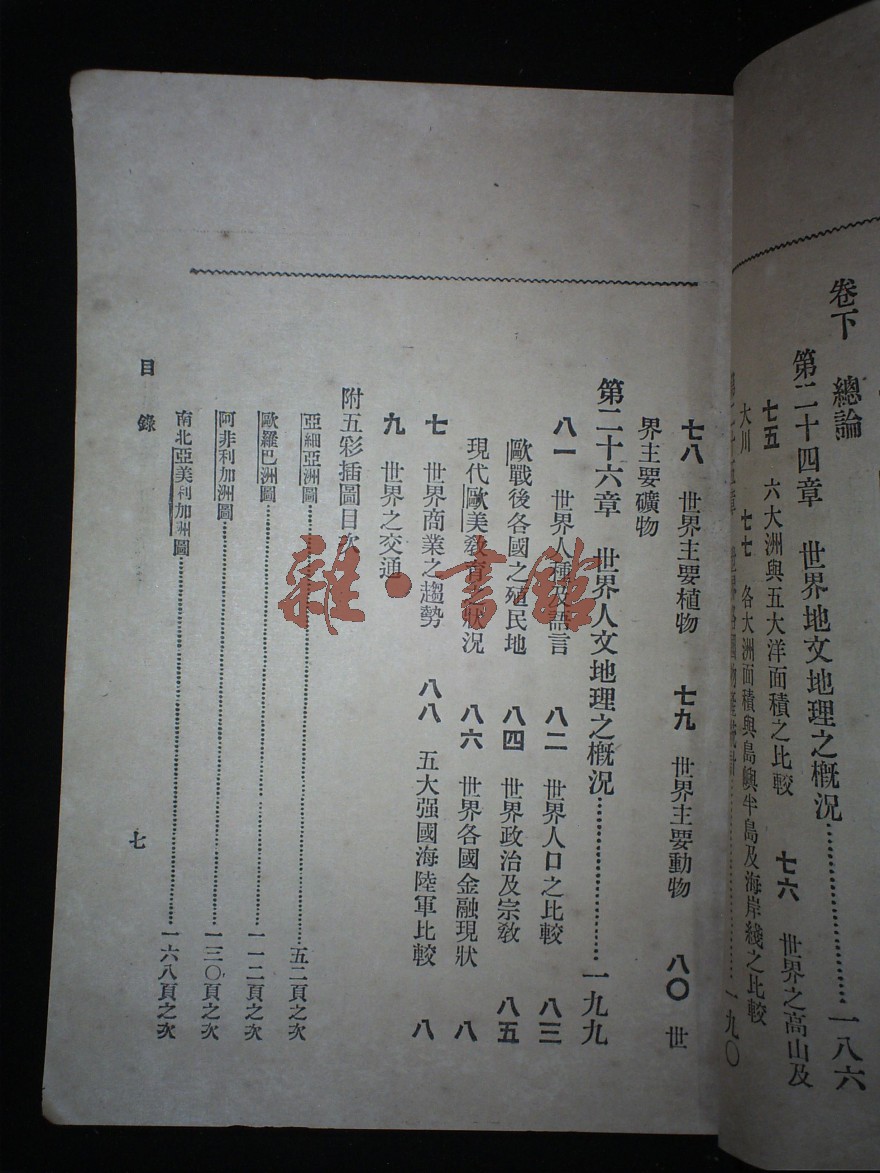 卷下　總論
第二十四章　世界地文地理之概況……一八六
七五　六大洲與五大洋面積之比較　七六　世界之高山及
大川　七七　各大洲面積與島嶼半島及海岸綫之比較
一九〇
七八　世界主要植物　七九　世界主要動物　八〇　世
界主要礦物
第二十六章　世界人文地理之概況……一九九
八一　世界人種及語言　八二　世界人口之比較　八三
歐戰後各國之殖民地　八四　世界政治及宗教　八五
現代歐美教育之狀況　八六　世界各國金融現狀　八
七　世界商業之趨勢　八八　五大强國海陸軍比較　八
九　世界之交通
附五彩插圖目次
亞細亞洲圖……五二頁之次
歐羅巴洲圖……一一二頁之次
阿非利加洲圖……一三〇頁之次
南北亞美利加洲圖……一六八頁之次
目錄
七
雜·書館